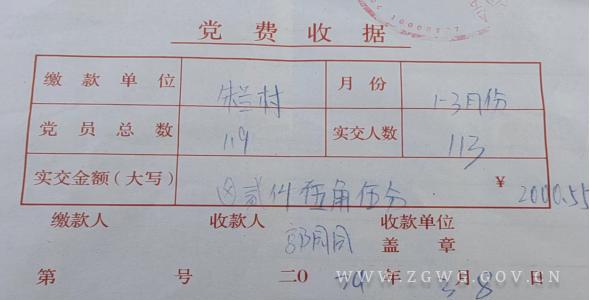 党费收据
缴款单位 朱兰村 月份 1-3月份
党员总数 119 实交人数 113
实交金额(大写) ⊗贰仟伍角伍分 ¥2000.55
缴款人 收款人 郭同同 收款单位
盖章
第 号 二0 年 3月8日
WWW.ZGWG.GOV.CN